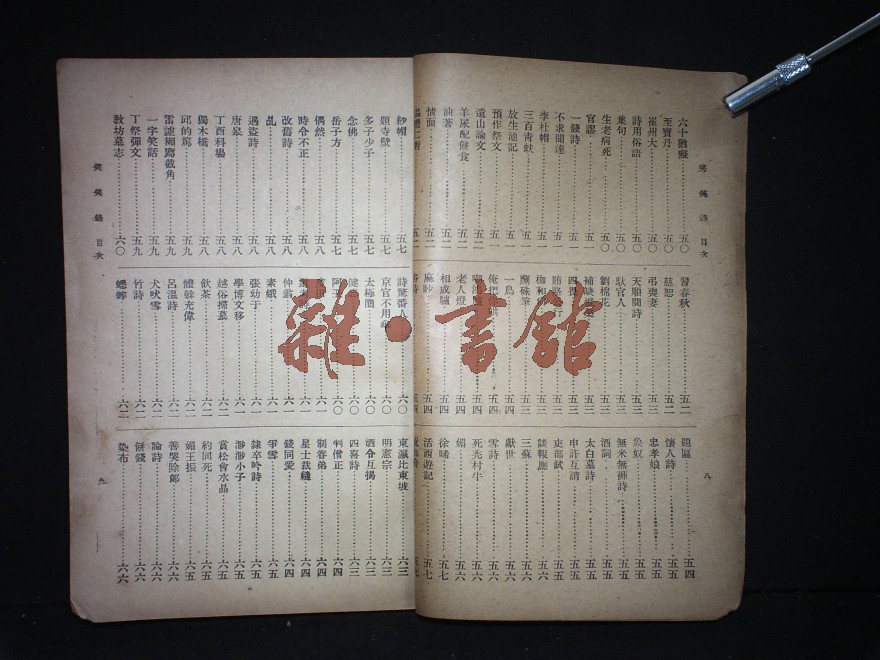 笑笑錄 目次
六十雞癡……五〇
至寶丹……五〇
崔州大……五〇
詩用俗語……五〇
集句……五〇
生老病死……五〇
官謬……五一
一錢詩……五一
不求聞達……五一
李杜帽……五一
三百靑蚨……五一
放生池記……五一
預作祭文……五一
遺山論文……五一
羊尿配餅食……五二
油著……五二
情面……五二
習春秋……五二
慈恕……五二
弔喪妻……五三
天順間詩……五三
馱官人……五三
劉棉花……五三
補缺……五三
一鳥……五四
老人燈……五四
相成驢……五四
麻吵……五四
題區……五四
懷人詩……五五
忠孝娘……五五
象奴……五五
無米無獅詩……五五
酒詞……五五
太白墓詩……五五
申許互謔……五五
吏部試……五五
談報應……五六
三蘇……五六
獻世……五六
雪詩……五六
死充村牛……五六
媚……五六
徐晞……五七
活西遊記……五七
八
紗帽……五七
題寺壁……五七
多子少子……五七
念佛……五七
岳子方……五八
偶然……五八
時令不正……五八
改舊詩……五八
乩……五八
遇盜詩……五八
唐皋……五八
丁酉科場……五八
獨木橋……五八
邱的篤……五九
雷謔……截角……五九
一字笑話……五九
丁祭彈文……五九
教坊墓志……六〇
詩驚番人……六〇
京官不用……六〇
太極圈……六〇
阿……六〇
仲……六一
素娥……六一
張幼于……六一
學博文移……六一
越俗掃墓……六二
飲茶……六二
體……充偉……六二
呂溫詩……六二
犬吠雪……六二
竹詩……六二
蟋蟀……六二
東瀛比東坡……六三
明憲宗……六三
酒令互揭……六三
四喜詩……六三
判僧正……六四
制眷弟……六四
星士裁縫……六四
錢同愛……六四
爭雪……六五
隸卒吟詩……六五
渺渺小子……六五
賞松會水品……六五
約同死……六五
媚王振……六五
善哭除郎……六六
論詩……六六
餅錢……六六
染布……六六
笑笑錄 目次
九
雜·書館